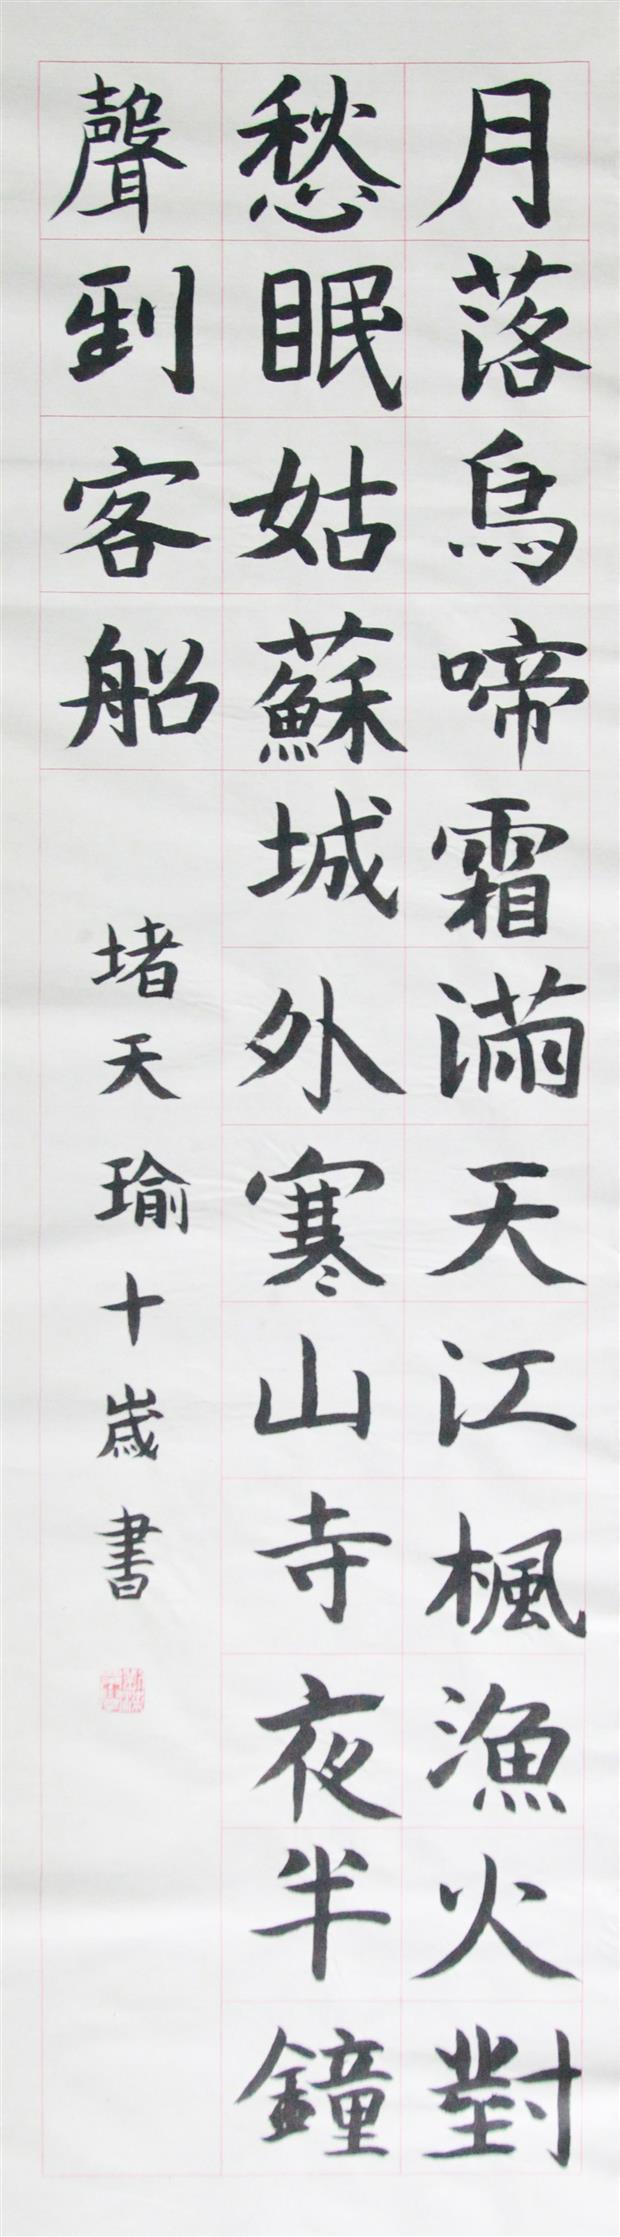 月落烏啼霜滿天江楓漁火對
愁眠姑蘇城外寒山寺夜半鐘
聲到客船
堵天瑜十歲書